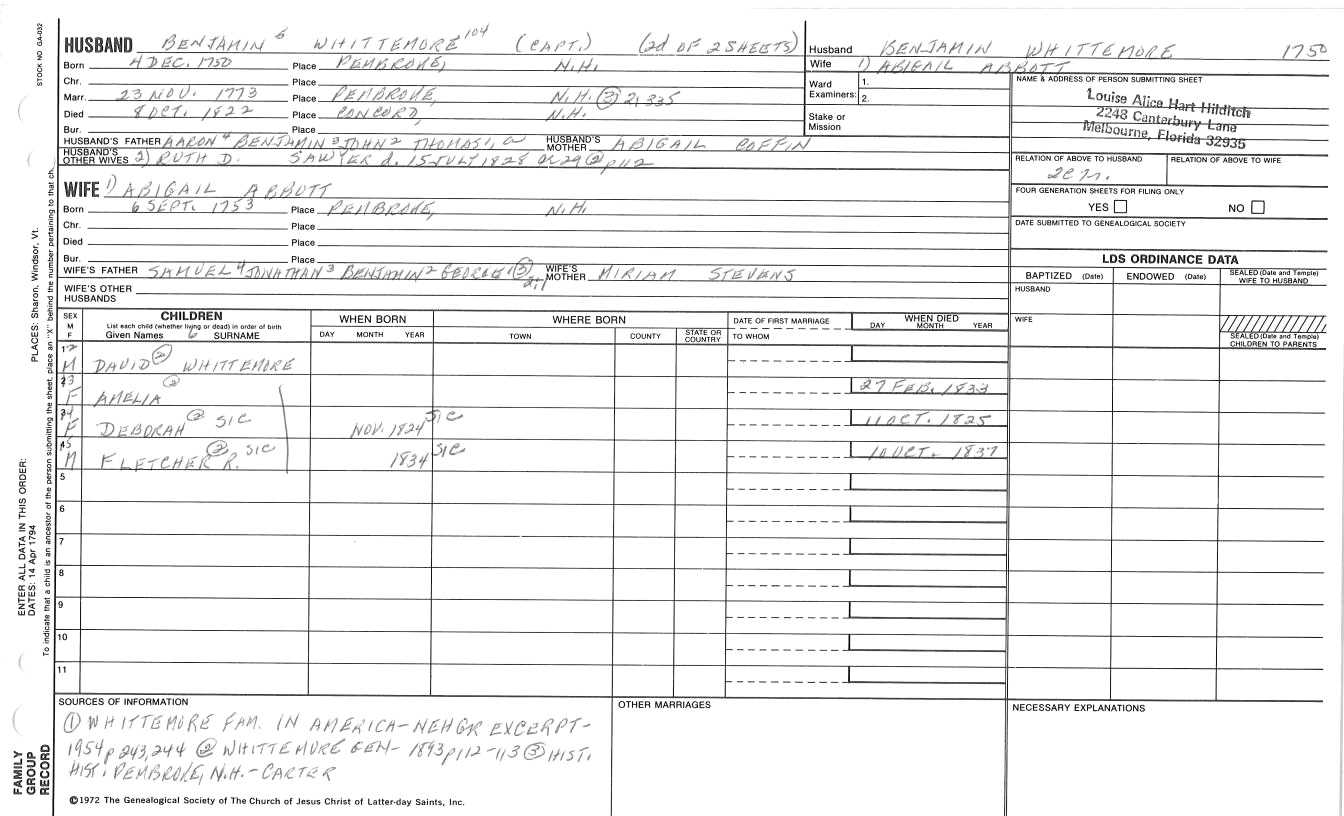 STOCK NO GA-032
HUSBAND BENJAMIN 6 WHITTEMORE 104 (CAPT.) (2d OF 2 SHEETS)
Born 4 DEC. 1750 Place PEMBROKE, N.H.
Chr. Place
Marr. 23 NOV. 1773 Place PEMBROKE, N.H. ③ 2, 335
Died 8 OCT. 1822 Place CONCORD, N.H.
Bur. Place
HUSBAND'S FATHER AARON 4 BENJAMIN 3 JOHN 2 THOMAS 1, HUSBAND'S MOTHER ABIGAIL COFFIN
HUSBAND'S OTHER WIVES 2) RUTH D. SAWYER d. 15 JULY 1828 or 29 ② p112
WIFE 1) ABIGAIL ABBOTT
Born 6 SEPT. 1753 Place PEMBROKE, N.H.
Chr. Place
Died Place
Bur. Place
WIFE'S FATHER SAMUEL 4 JONATHAN 3 BENJAMIN 2 GEORGE 1 ③ 2,1 WIFE'S MOTHER MIRIAM STEVENS
WIFE'S OTHER HUSBANDS
Husband BENJAMIN WHITTEMORE 1750
Wife 1) ABIGAIL ABBOTT
Ward Examiners: 1.
2.
Stake or Mission
NAME & ADDRESS OF PERSON SUBMITTING SHEET
Louise Alice Hart Hilditch
2248 Canterbury Lane
Melbourne, Florida 32935
RELATION OF ABOVE TO HUSBAND RELATION OF ABOVE TO WIFE
FOUR GENERATION SHEETS FOR FILING ONLY
YES NO
DATE SUBMITTED TO GENEALOGICAL SOCIETY
LDS ORDINANCE DATA
BAPTIZED (Date) ENDOWED (Date) SEALED (Date and Temple) WIFE TO HUSBAND
HUSBAND
WIFE
SEALED (Date and Temple) CHILDREN TO PARENTS
SEX M F CHILDREN WHEN BORN WHERE BORN DATE OF FIRST MARRIAGE WHEN DIED
List each child (whether living or dead) in order of birth
Given Names 6 SURNAME DAY MONTH YEAR TOWN COUNTY STATE OR COUNTRY TO WHOM DAY MONTH YEAR
M DAVID ② WHITTEMORE
F AMELIA ② 27 FEB. 1833
F DEBORAH ② SIC NOV. 1824 SIC 11 OCT. 1825
M FLETCHER R. ② SIC 1834 SIC 1 OCT. 1837
5
6
7
8
9
10
11
SOURCES OF INFORMATION
① WHITTEMORE FAM. IN AMERICA-NEHGR EXCERPT-
1954 p 243, 244 ② WHITTEMORE GEN- 1893 p112-113 ③ HIST.
HIST. PEMBROKE, N.H.-CARTER
OTHER MARRIAGES
NECESSARY EXPLANATIONS
©1972 The Genealogical Society of The Church of Jesus Christ of Latter-day Saints, Inc.
FAMILY GROUP RECORD
ENTER ALL DATA IN THIS ORDER:
DATES: 14 Apr 1794
PLACES: Sharon, Windsor, Vt.
To indicate that a child is an ancestor of the person submitting the sheet, place an "X" behind the number pertaining to that ch.